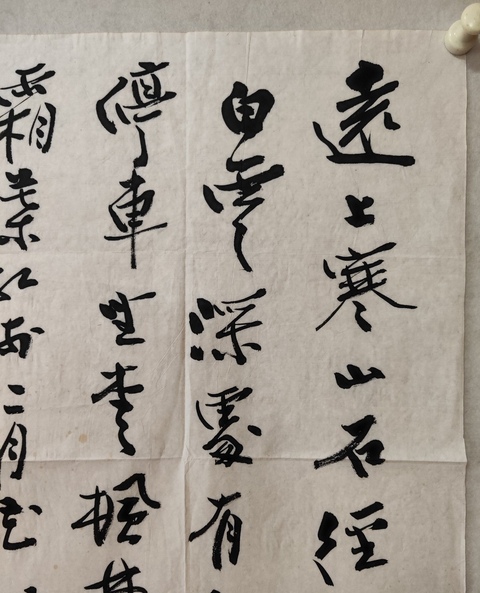 遠上寒山石徑
白雲深處有
停車坐愛楓林
霜葉紅於二月花